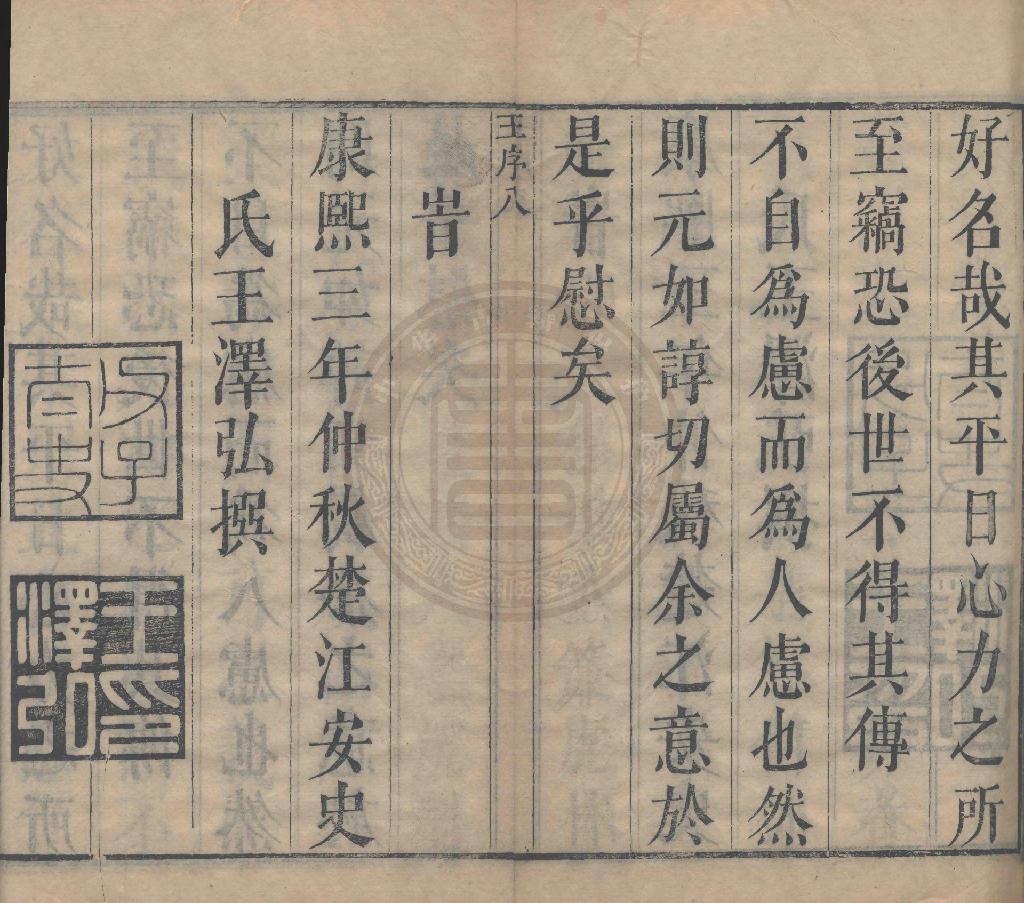 好名哉其平日心力之所
至竊恐後世不得其傳
不自爲慮而爲人慮也然
則元如諄切屬余之意於
是乎慰矣
王序八
旹
康熙三年仲秋楚江安史
氏王澤弘撰
王印澤弘